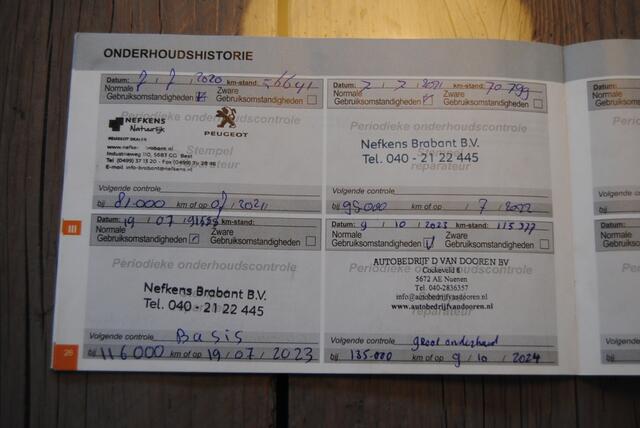 ONDERHOUDSHISTORIE
Datum: / 7 / 2020 km-stand:
Normale Gebruiksomstandigheden
Zware Gebruiksomstandigheden
Periodieke onderhoudscontrole
NEFKENS
Natuurlijk
PEUGEOT DEALER
PEUGEOT
Industrieweg 110, 5683 CG Best
Stempel
reparateur
Volgende controle
bij 81.000 km of op / 2021
Datum: 7 / 7 / 2021 km-stand: 70.799
Normale Gebruiksomstandigheden
Zware Gebruiksomstandigheden
Periodieke onderhoudscontrole
Nefkens Brabant B.V.
Tel. 040 - 21 22 445
Stempel
reparateur
Volgende controle
bij km of op / 7 / 2022
III
Datum: 19 / 07 / km-stand:
Normale Gebruiksomstandigheden
Zware Gebruiksomstandigheden
Periodieke onderhoudscontrole
Nefkens Brabant B.V.
Tel. 040 - 21 22 445
reparateur
Volgende controle Basis
bij 116000 km of op 19 / 07 / 2023
Datum: 9 / 10 / 2023 km-stand: 115.377
Normale Gebruiksomstandigheden
Zware Gebruiksomstandigheden
Periodieke onderhoudscontrole
AUTOBEDRIJF D VAN DOOREN BV
Cockeveld 8
5672 AE Nuenen
Tel. 040-2836357
info@autobedrijfvandooren.nl
www.autobedrijfvandooren.nl
reparateur
Volgende controle groot onderhoud
bij 135.000 km of op 9 / 10 / 2024
26